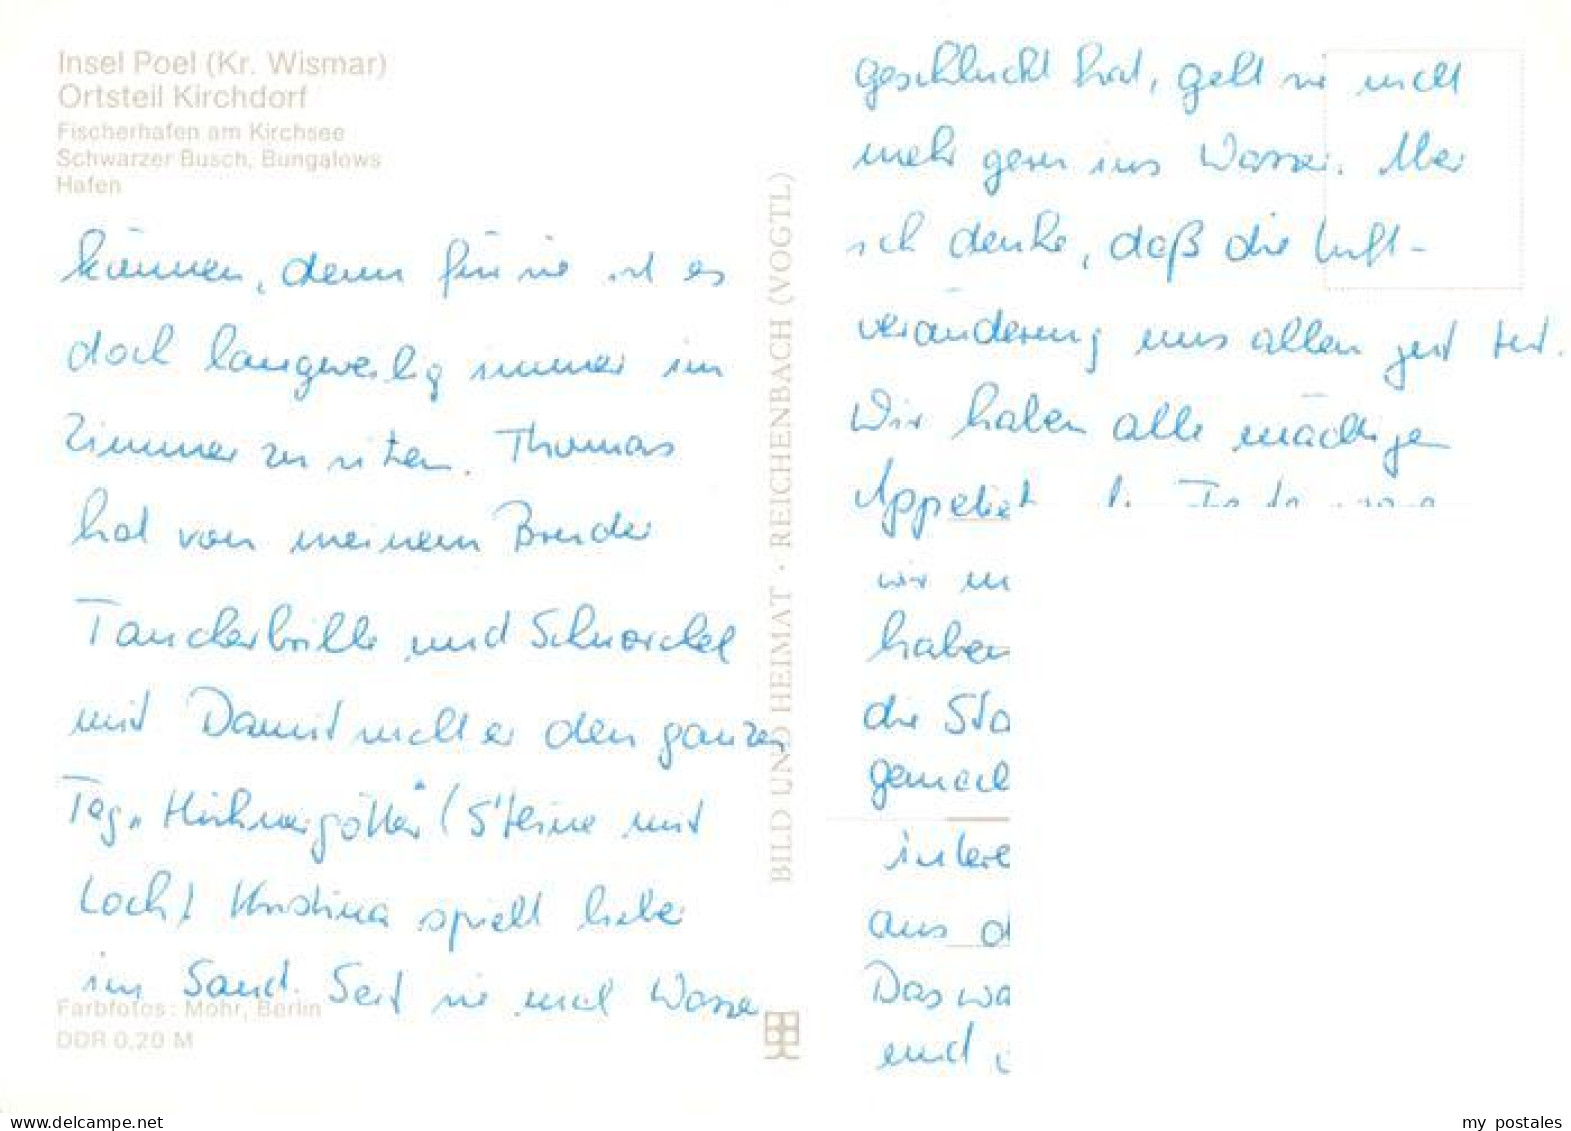 Insel Poel (Kr. Wismar)
Ortsteil Kirchdorf
Fischerhafen am Kirchsee
Schwarzer Busch, Bungalows
Hafen
können, denn für sie ist es
doch langweilig immer im
Zimmer zu sitzen. Thomas
hat von meinem Bruder
Taucherbrille und Schnorchel
mit Damit sucht er den ganzen
Tag „Hühnergötter" (Steine mit
Loch) Kristina spielt lieber
im Sand. Seit sie mal Wasser
Farbfotos: Mohr, Berlin
DDR 0,20 M
BILD UND HEIMAT · REICHENBACH (VOGTL)
geschluckt hat, geht sie nicht
mehr gern ins Wasser. Aber
ich denke, daß die Luft-
veränderung uns allen gut tut.
Wir haben alle mächtigen
Appetit
wir
haben
die Sta
gemach
intere
aus d
Das wa
und
www.delcampe.net
my_postales